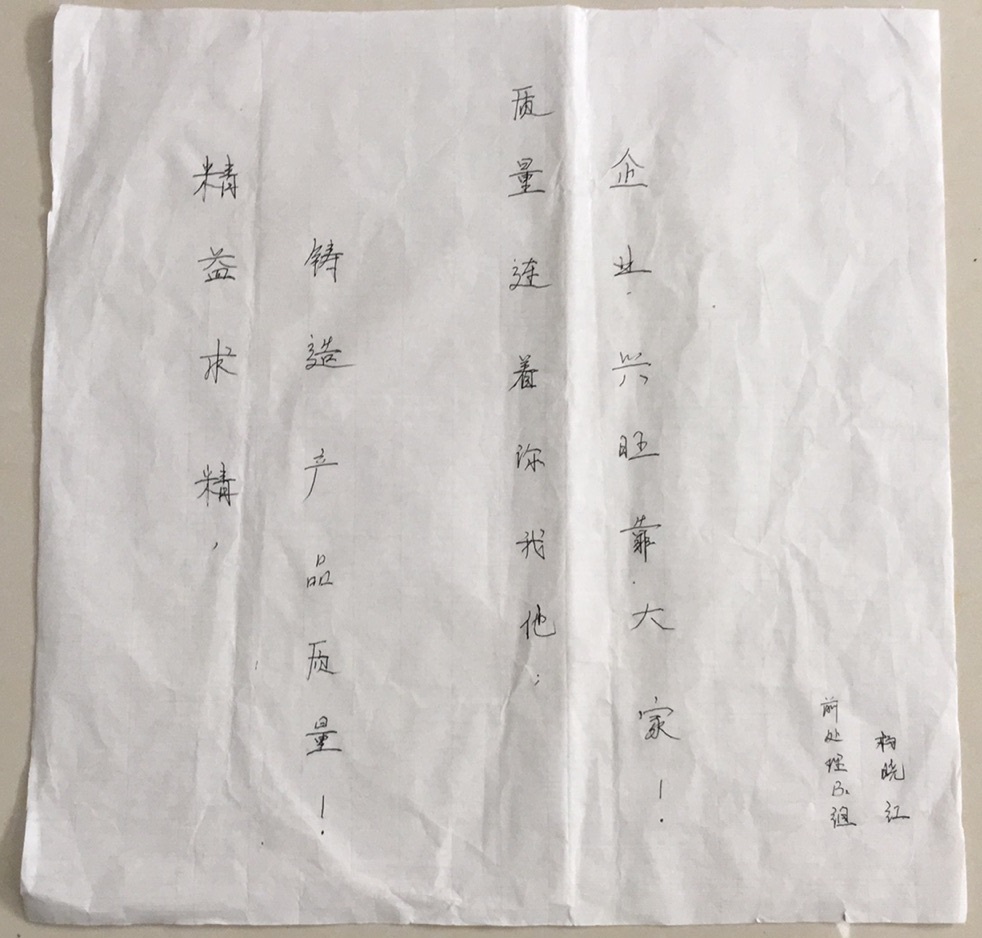 精益求精，
铸造产品质量！
质量连着你我他；
企业兴旺靠大家！
前处理B组
杨晓红